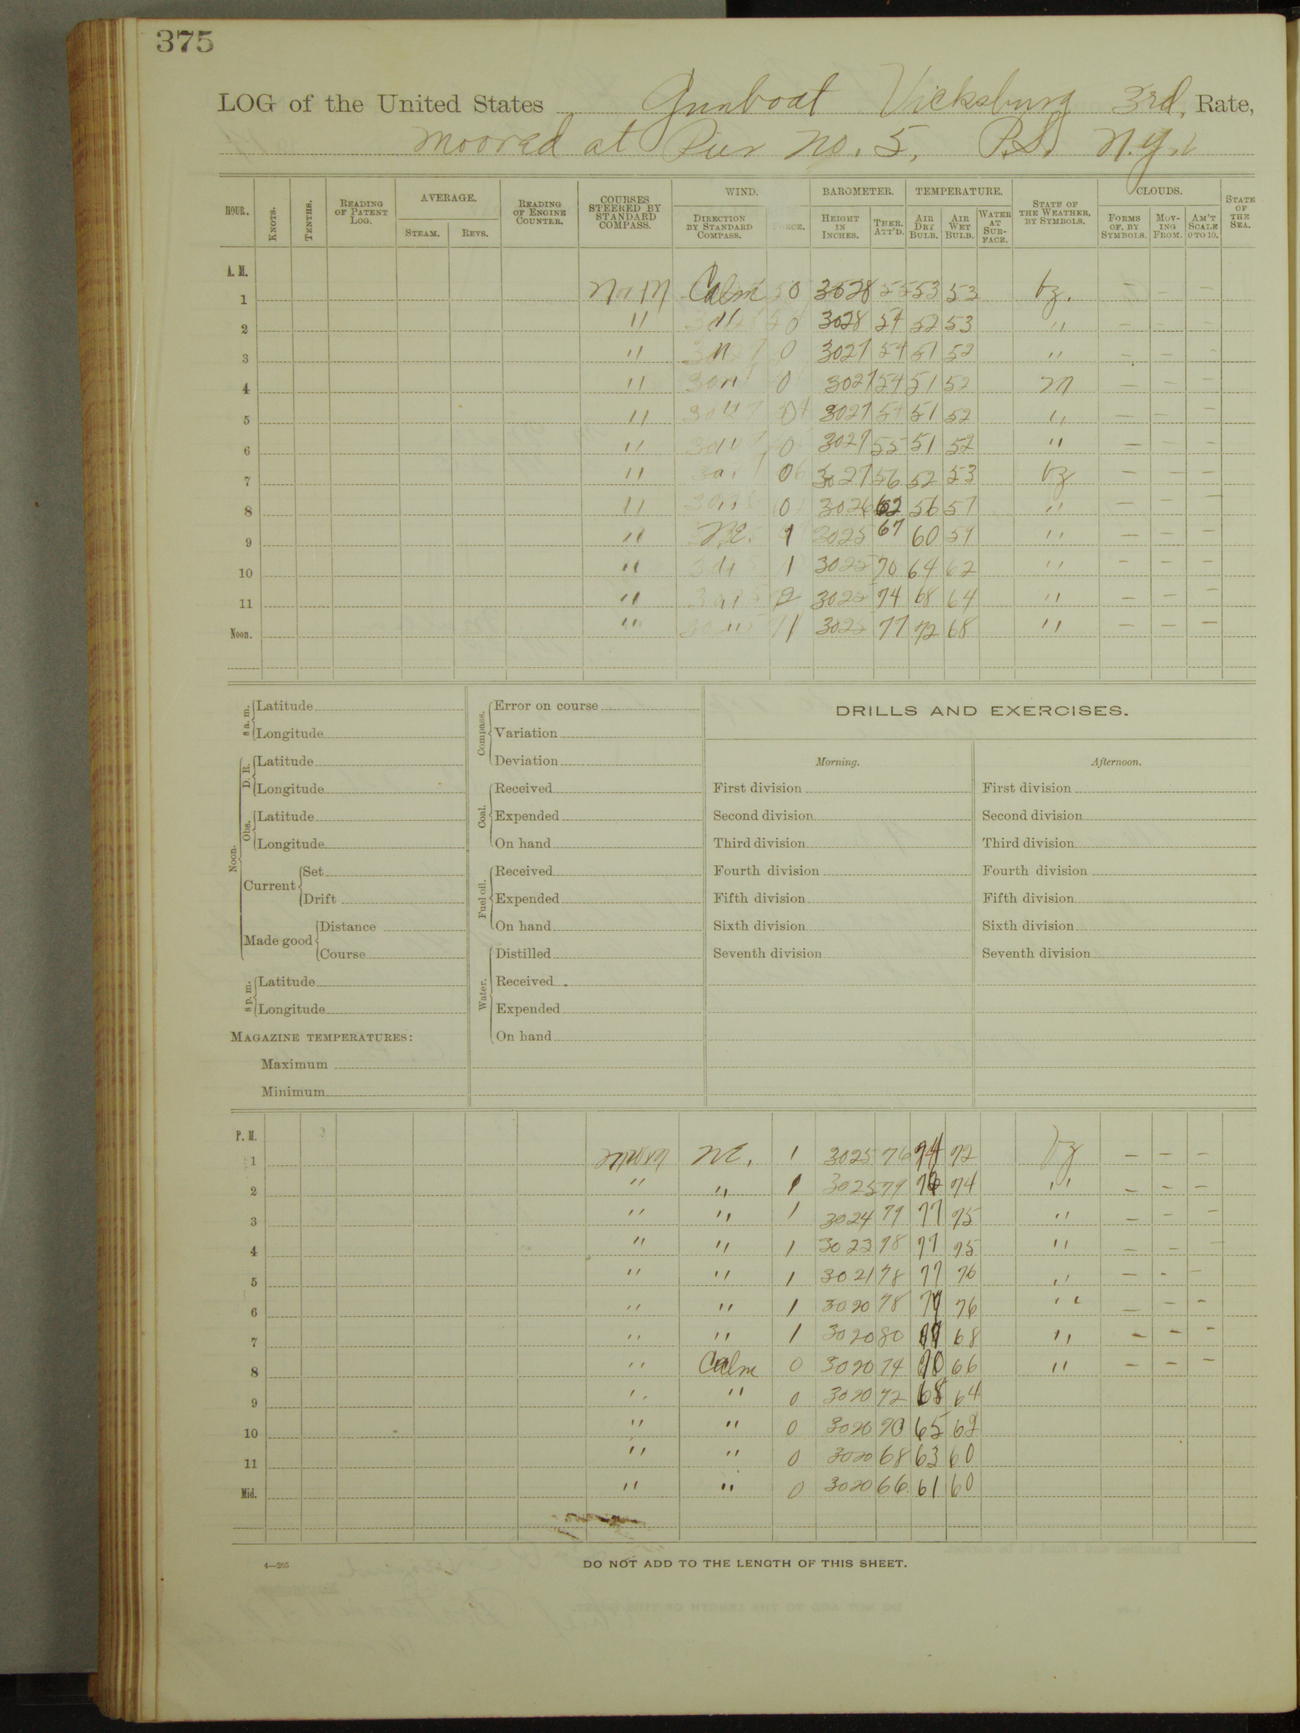 375
LOG of the United States Gunboat Vicksburg 3rd, Rate,
Moored at Pier No. 5, P.S. N.Y.
HOUR. KNOTS. TENTHS. READING OF PATENT LOG. AVERAGE. STEAM. REVS. READING OF ENGINE COUNTER. COURSES STEERED BY STANDARD COMPASS. WIND. DIRECTION BY STANDARD COMPASS. FORCE. BAROMETER. HEIGHT IN INCHES. THER. ATT'D. TEMPERATURE. AIR DRY BULB. AIR WET BULB. WATER AT SURFACE. STATE OF THE WEATHER, BY SYMBOLS. CLOUDS. FORMS OF, BY SYMBOLS. MOVING FROM. AM'T SCALE 0 TO 10. STATE OF THE SEA.
A. M.
1 Calm 0 3028 55 53 53 bz. — — —
2 " " 0 3028 54 52 53 " — — —
3 " " 0 3027 54 51 52 " — — —
4 " " 0 3027 54 51 52 m — — —
5 " " 0 3027 54 51 52 " — — —
6 " " 0 3027 55 51 52 " — — —
7 " " 0 3027 56 52 53 bz — — —
8 " " 0 3026 62 56 57 " — — —
9 " NE. 1 3025 67 60 59 " — — —
10 " " 1 3025 70 64 62 " — — —
11 " " 2 3025 74 68 64 " — — —
Noon. " " 1 3025 77 72 68 " — — —
8 a. m. Latitude
Longitude
Noon. D. R. Latitude
Longitude
Obs. Latitude
Longitude
Current Set
Drift
Made good Distance
Course
8 p. m. Latitude
Longitude
MAGAZINE TEMPERATURES:
Maximum
Minimum
Compass. Error on course
Variation
Deviation
Coal. Received
Expended
On hand
Fuel oil. Received
Expended
On hand
Water. Distilled
Received
Expended
On hand
DRILLS AND EXERCISES.
Morning. Afternoon.
First division First division
Second division Second division
Third division Third division
Fourth division Fourth division
Fifth division Fifth division
Sixth division Sixth division
Seventh division Seventh division
P. M.
1 NE. 1 3025 76 74 72 bz — — —
2 " " 1 3025 79 74 " — — —
3 " " 1 3024 79 77 75 " — — —
4 " " 1 3023 78 77 75 " — — —
5 " " 1 3021 78 77 76 " — — —
6 " " 1 3020 78 76 " — — —
7 " " 1 3020 80 68 " — — —
8 " Calm 0 3020 74 70 66 " — — —
9 " " 0 3020 72 68 64
10 " " 0 3020 70 65 62
11 " " 0 3020 68 63 60
Mid. " " 0 3020 66 61 60
4—205
DO NOT ADD TO THE LENGTH OF THIS SHEET.